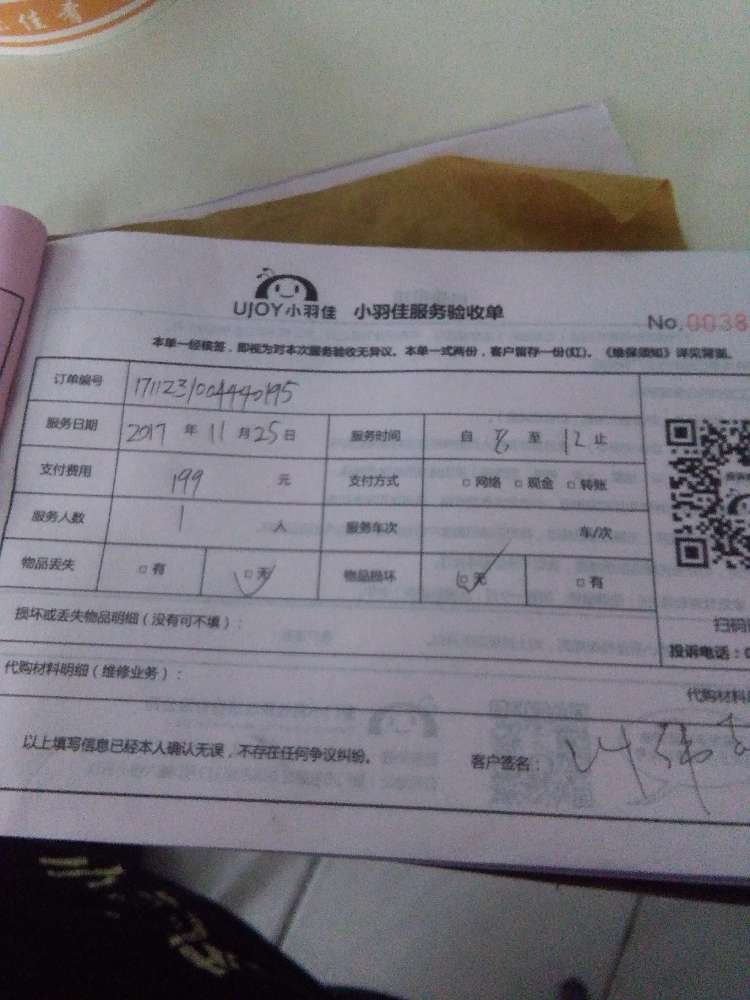 佳音
UJOY小羽佳 小羽佳服务验收单
No.0038
本单一经核签，即视为对本次服务验收无异议。本单一式两份，客户留存一份(红)。《维保须知》详见背面。
订单编号 1711231004440195
服务日期 2017 年 11 月 25 日 服务时间 自 8 至 12 止
支付费用 199 元 支付方式 □ 网络 □ 现金 □ 转账
服务人数 1 人 服务车次 车/次
物品丢失 □ 有 □ 无 物品损坏 □ 无 □ 有
损坏或丢失物品明细（没有可不填）：
扫码
投诉电话：0
代购材料明细（维修业务）：
代购材料
以上填写信息已经本人确认无误，不存在任何争议纠纷。 客户签名：